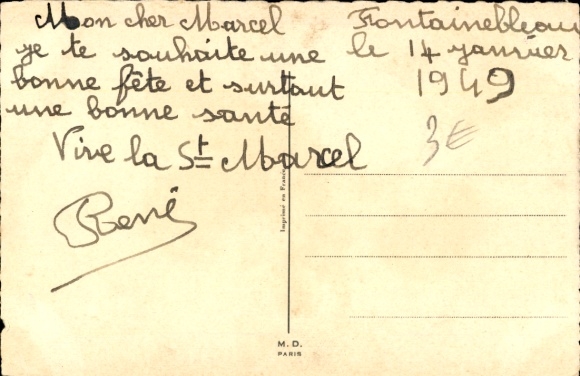 Mon cher Marcel
je te souhaite une
bonne fête et surtout
une bonne santé
Vive la St Marcel
René
Fontainebleau
le 14 janvier
1949
3€
Imprimé en France
M. D.
PARIS